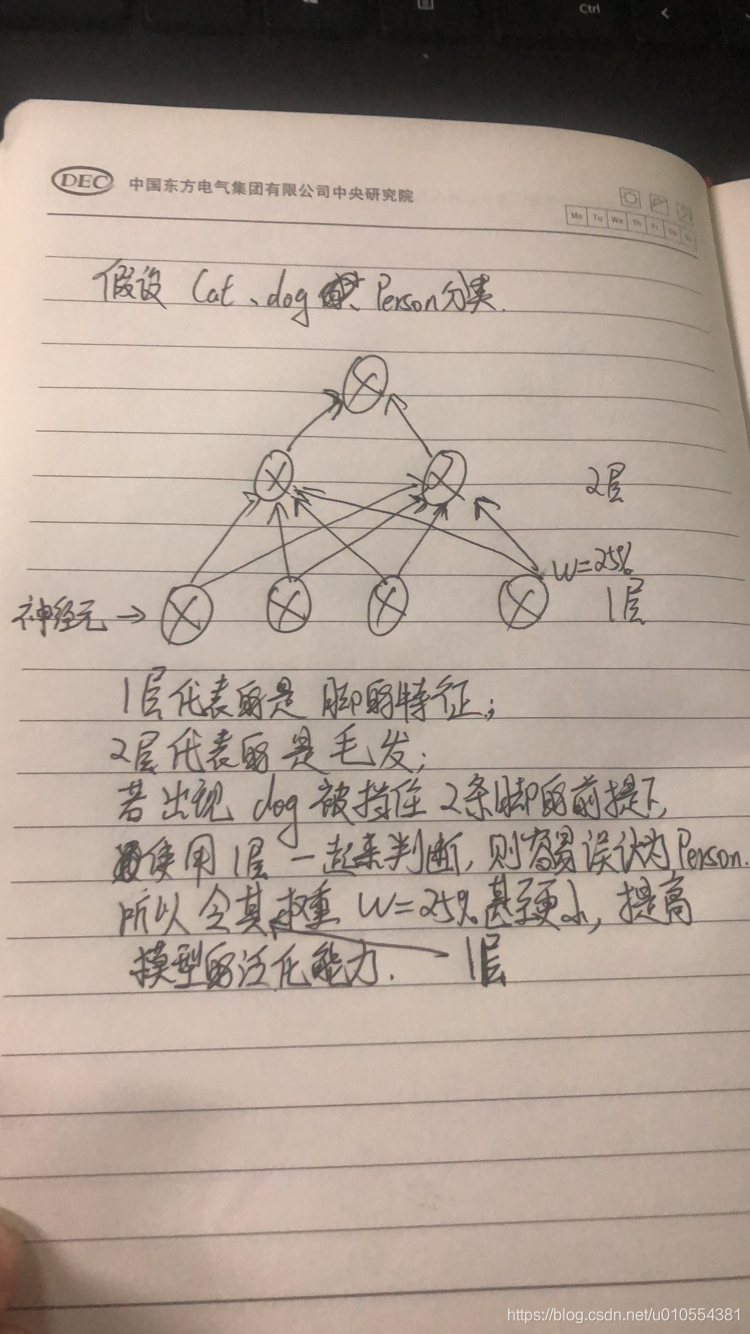 Ctrl
DEC 中国东方电气集团有限公司中央研究院
Mo Tu We Th Fr Sa Su
假设 Cat、dog、Person分类.
2层
W=25%
神经元→
1层
1层代表的是 脚的特征;
2层代表的是毛发;
若出现 dog 被挡住 2条脚的前提下,
使用 1层 一起来判断, 则容易误认为 Person.
所以令其权重 W=25% 甚至更小, 提高
模型的泛化能力.
1层
https://blog.csdn.net/u010554381